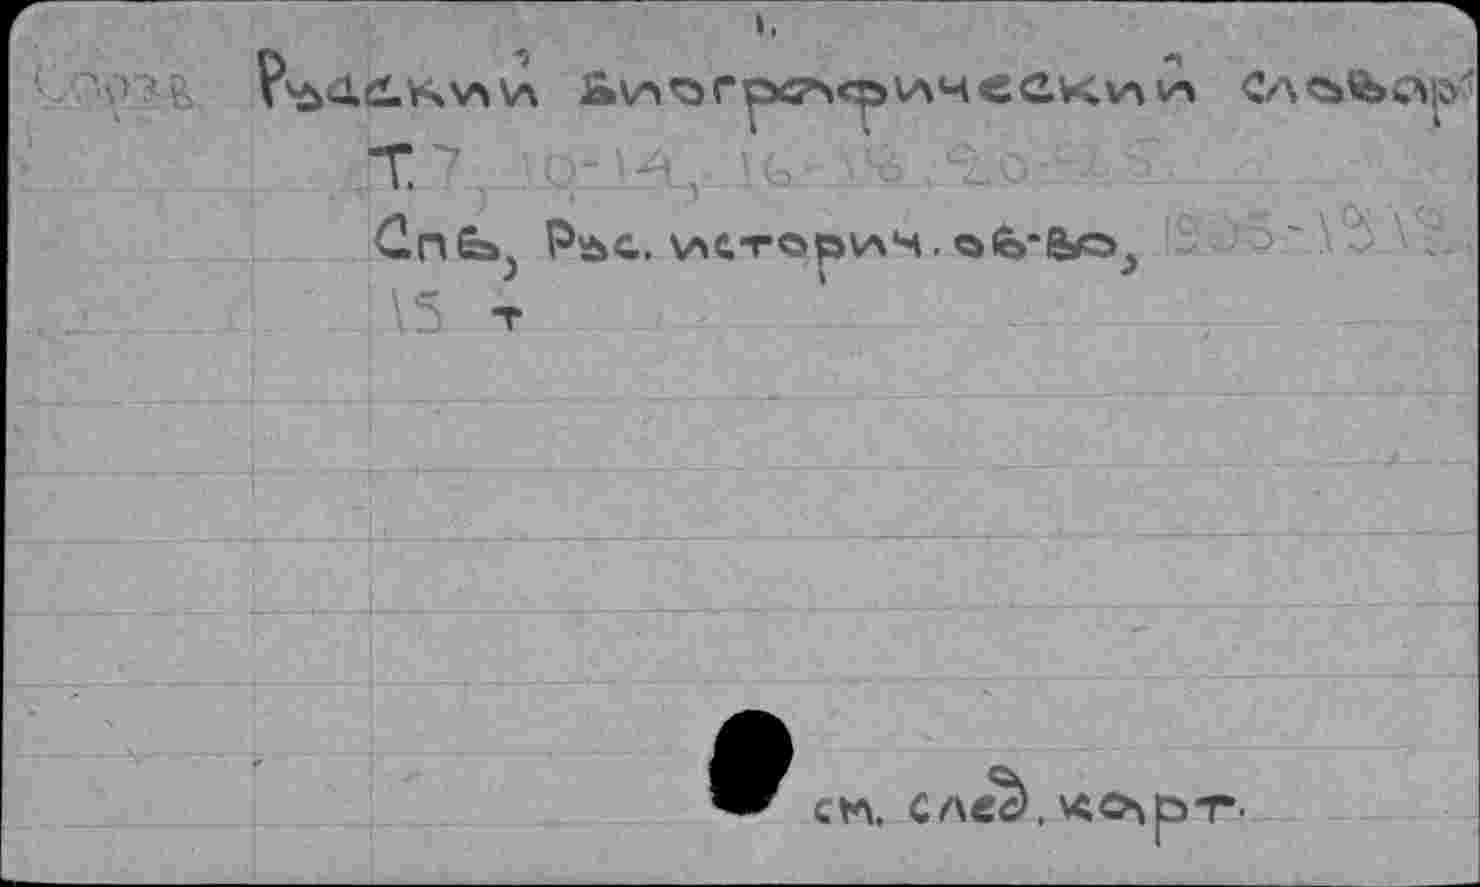 1.
Русский биографический словарь
Т. 7, 10-14, 16-18, 20-
Спб, Рус. историч. об-во, 1905-1918.
15 т
см. след. карт.